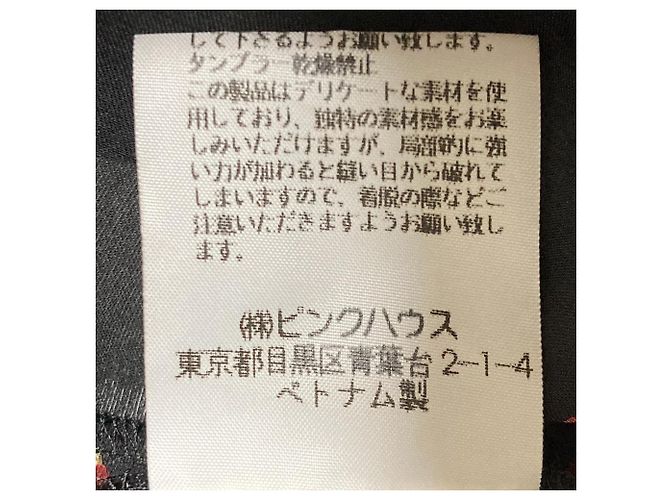 して下さるようお願い致します。
タンブラー乾燥禁止
この製品はデリケートな素材を使
用しており、独特の素材感をお楽
しみいただけますが、局部的に強
い力が加わると縫い目から破れて
しまいますので、着脱の際などご
注意いただきますようお願い致し
ます。
㈱ピンクハウス
東京都目黒区青葉台2-1-4
ベトナム製